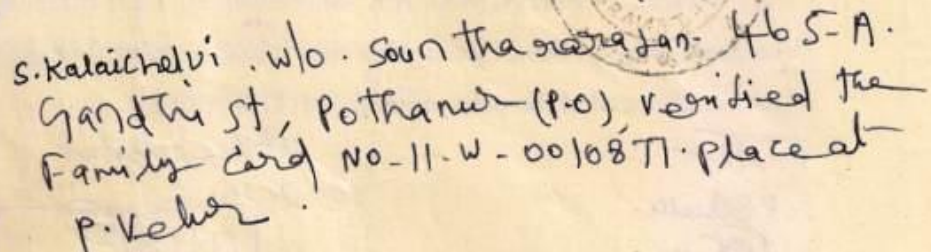 S. Kalaichelvi . W/o . Soundhararajan - 465-A.
Gandhi st, Pothanur (P.O), verified the
Family Card No-11-W-0010877. place at
P. Velur .